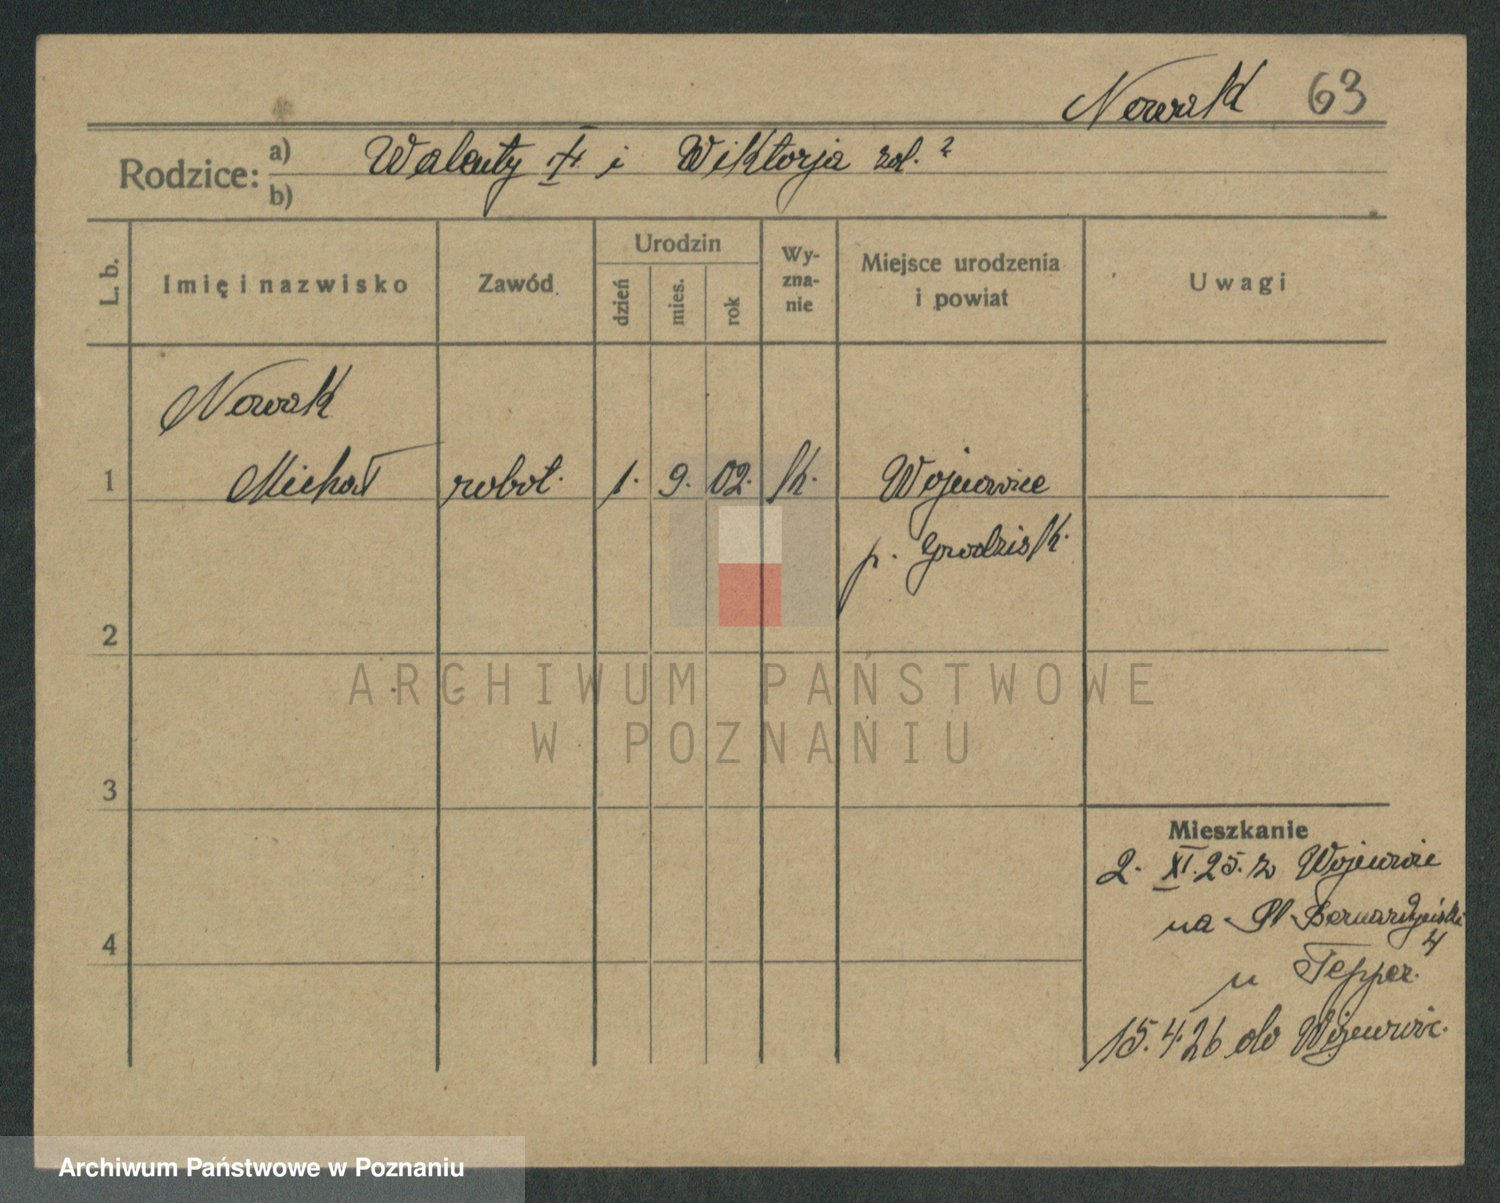 Nowak 63
Rodzice: a) Walenty i Wiktorja zol. ?
b)
L. b. Imię i nazwisko Zawód Urodzin dzień mies. rok Wy-zna-nie Miejsce urodzenia i powiat Uwagi
Nowak
1 Michał robot. 1. 9. 02. k. Wojnowice
p. Grodzisk.
2
ARCHIWUM PAŃSTWOWE
W POZNANIU
3
Mieszkanie
2. XI. 25. z Wojnowic
na Pl. Bernardyński
4
4
u Tepper.
15. 4. 26 do Wojnowic.
Archiwum Państwowe w Poznaniu